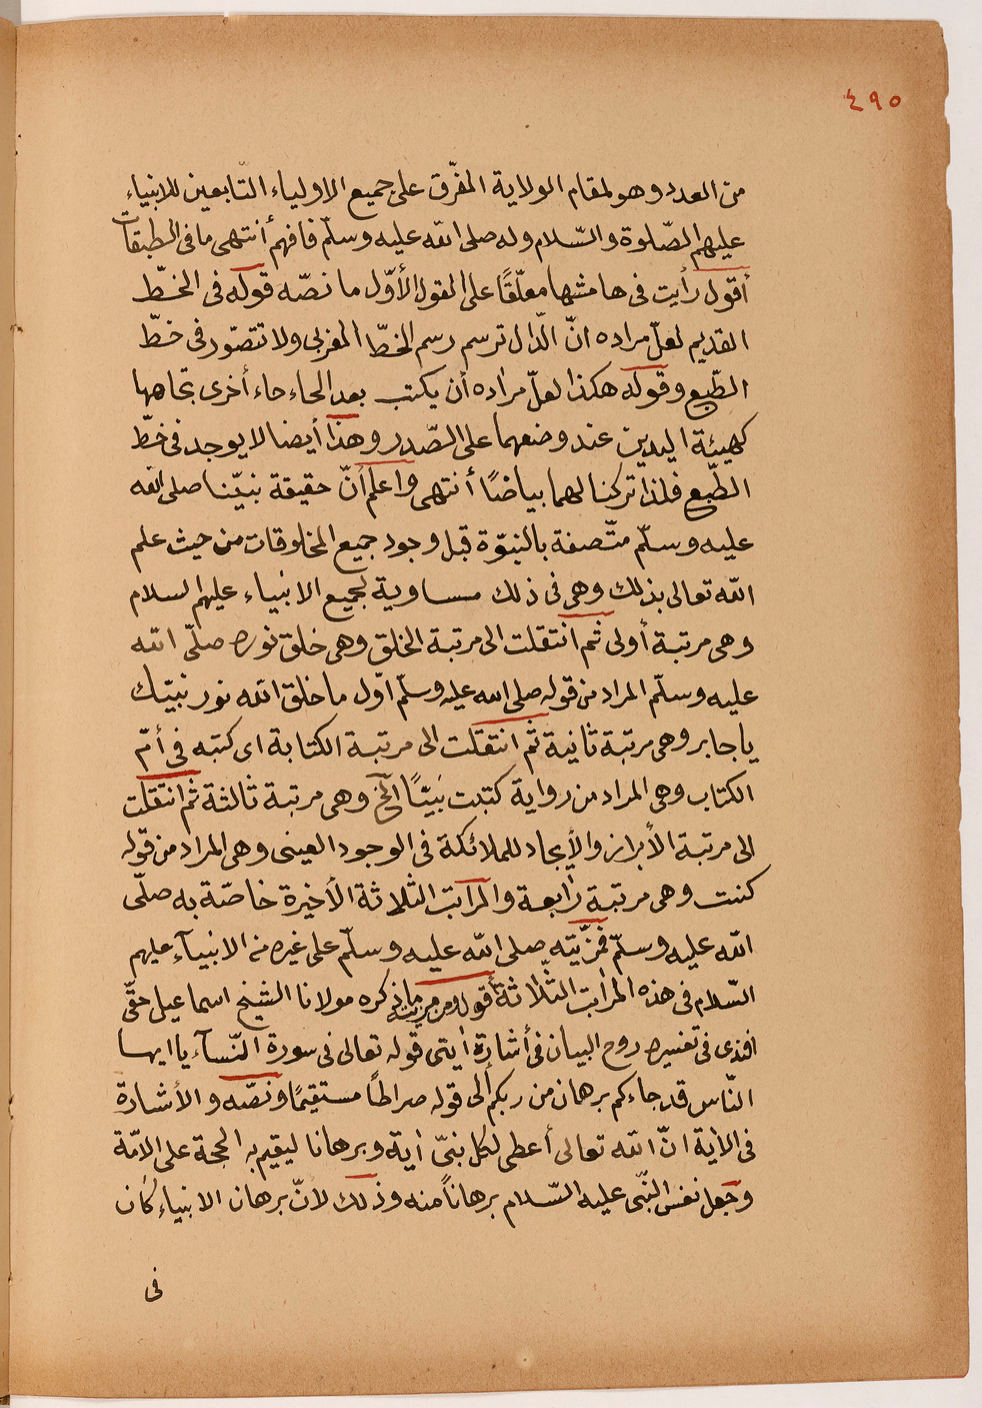 ٤٩٥
من العدد وهو لمقام الولاية المفرق على جميع الاولياء التّابعين للانبياء
عليهم الصّلوة والسّلام وله صلى الله عليه وسلّم فافهم أنتهى ما فى الطبقات
أقول رأيت فى هامشها معلّقًا على القول الأوّل ما نصّه قوله فى الخطّ
القديم لعلّ مراده انّ الدّال ترسم رسم الخطّ المغربى ولا تتصّور فى خطّ
الطّبع وقوله هكذا لعلّ مراده أن يكتب بعد الحاء حاء أخرى تجاهها
كهيئة اليدين عند وضعهما على الصّدر وهذا أيضا لا يوجد فى خطّ
الطّبع فلذا تركنا لهما بياضًا أنتهى واعلم أنّ حقيقة نبيّنا صلى الله
عليه وسلّم متّصفة بالنبوّة قبل وجود جميع المخلوقات من حيث علم
الله تعالى بذلك وهى فى ذلك مساوية لجميع الانبياء عليهم السلام
وهى مرتبة أولى ثم انتقلت الى مرتبة الخلق وهى خلق نوره صلّى الله
عليه وسلّم المراد من قوله صلى الله عليه وسلّم اوّل ما خلق الله نور نبيّك
يا جابر وهى مرتبة ثانية ثم انتقلت الى مرتبة الكتابة اى كتبه فى أمّ
الكتاب وهى المراد من رواية كتبت نبيًّا الخ وهى مرتبة ثالثة ثم انتقلت
الى مرتبة الأبراز والأيجاد للملائكة فى الوجود العينى وهى المراد من قوله
كنت وهى مرتبة رابعة والمراتب الثلاثة الأخيرة خاصّة به صلّى
الله عليه وسلّم فمزيّته صلى الله عليه وسلّم على غيره من الانبيآء عليهم
السّلام فى هذه المراتب الثلاثة أقول ومن مزيته ما ذكره مولانا الشيخ اسماعيل حقّى
افندى فى تفسيره روح البيان فى أشارة أيتى قوله تعالى فى سورة النّسآء يا ايها
النّاس قد جاءكم برهان من ربكم ألى قوله صراطاً مستقيمًا ونصّه والأشارة
فى الأية انّ الله تعالى أعطى لكل نبىّ أية وبرهانا ليقيم به الحجة على الامّة
وجعل نفس النّبى عليه السّلام برهاناً منه وذلك لانّ برهان الانبياء كان
فى